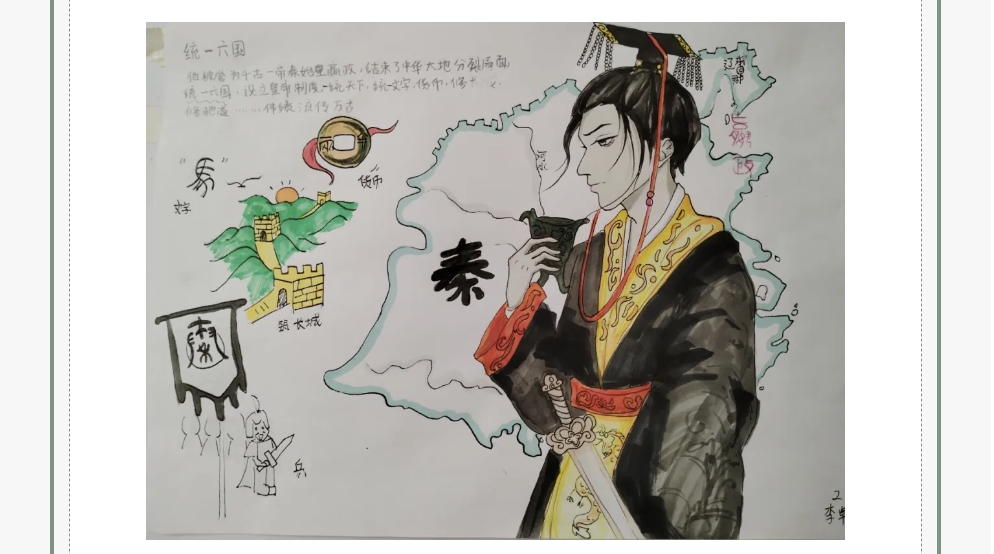 统一六国
他被誉为千古一帝秦始皇嬴政，结束了中华大地分裂局面，
统一六国，设立皇帝制度，一统天下，统一文字，货币，修长
修驰道……伟绩流传万古
货币
"馬"
文字
筑长城
秦
兵
嬴政
李